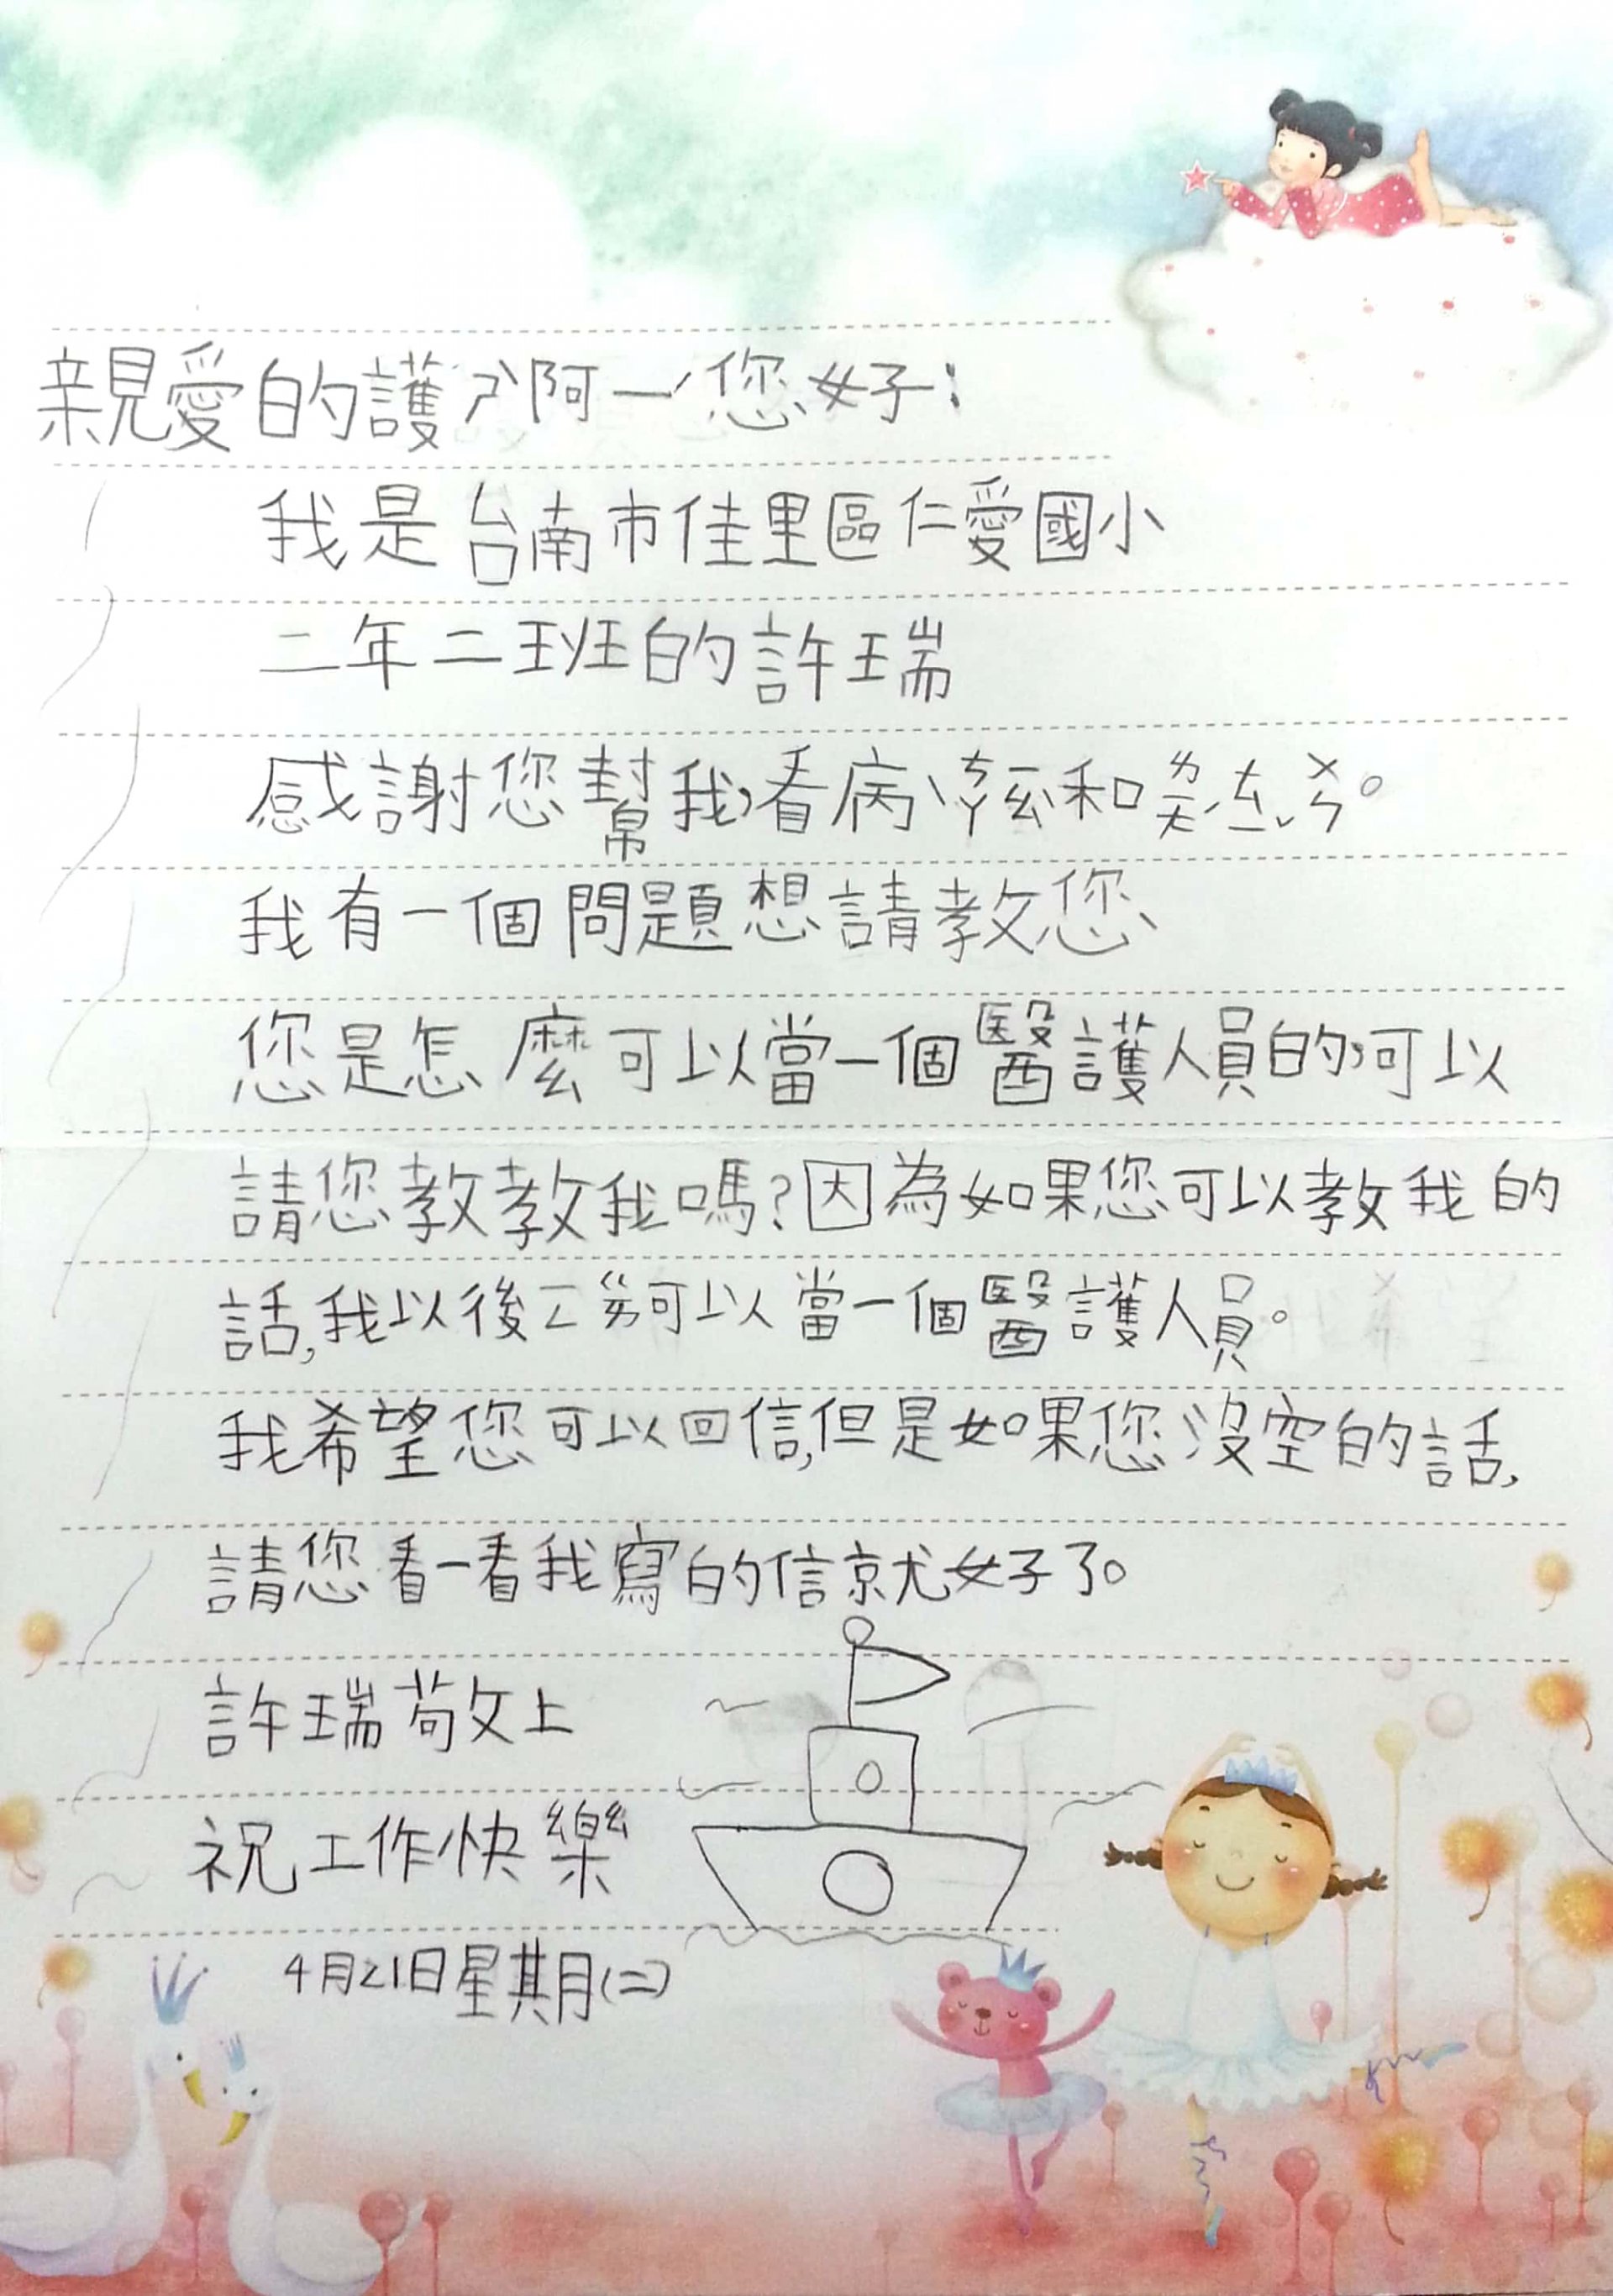 親愛的護ㄕˋ阿ㄧˊ您好：
我是台南市佳里區仁愛國小
二年二班的許瑞
感謝您幫我,看病、和。
我有一個問題想請教您、
您是怎麼可以當一個醫護人員的,可以
請您教教我嗎?因為如果您可以教我的
話,我以後可以當一個醫護人員。
我希望您可以回信,但是如果您沒空的話,
請您看一看我寫的信就好了。
許瑞敬上
祝工作快樂
4月21日星期(二)